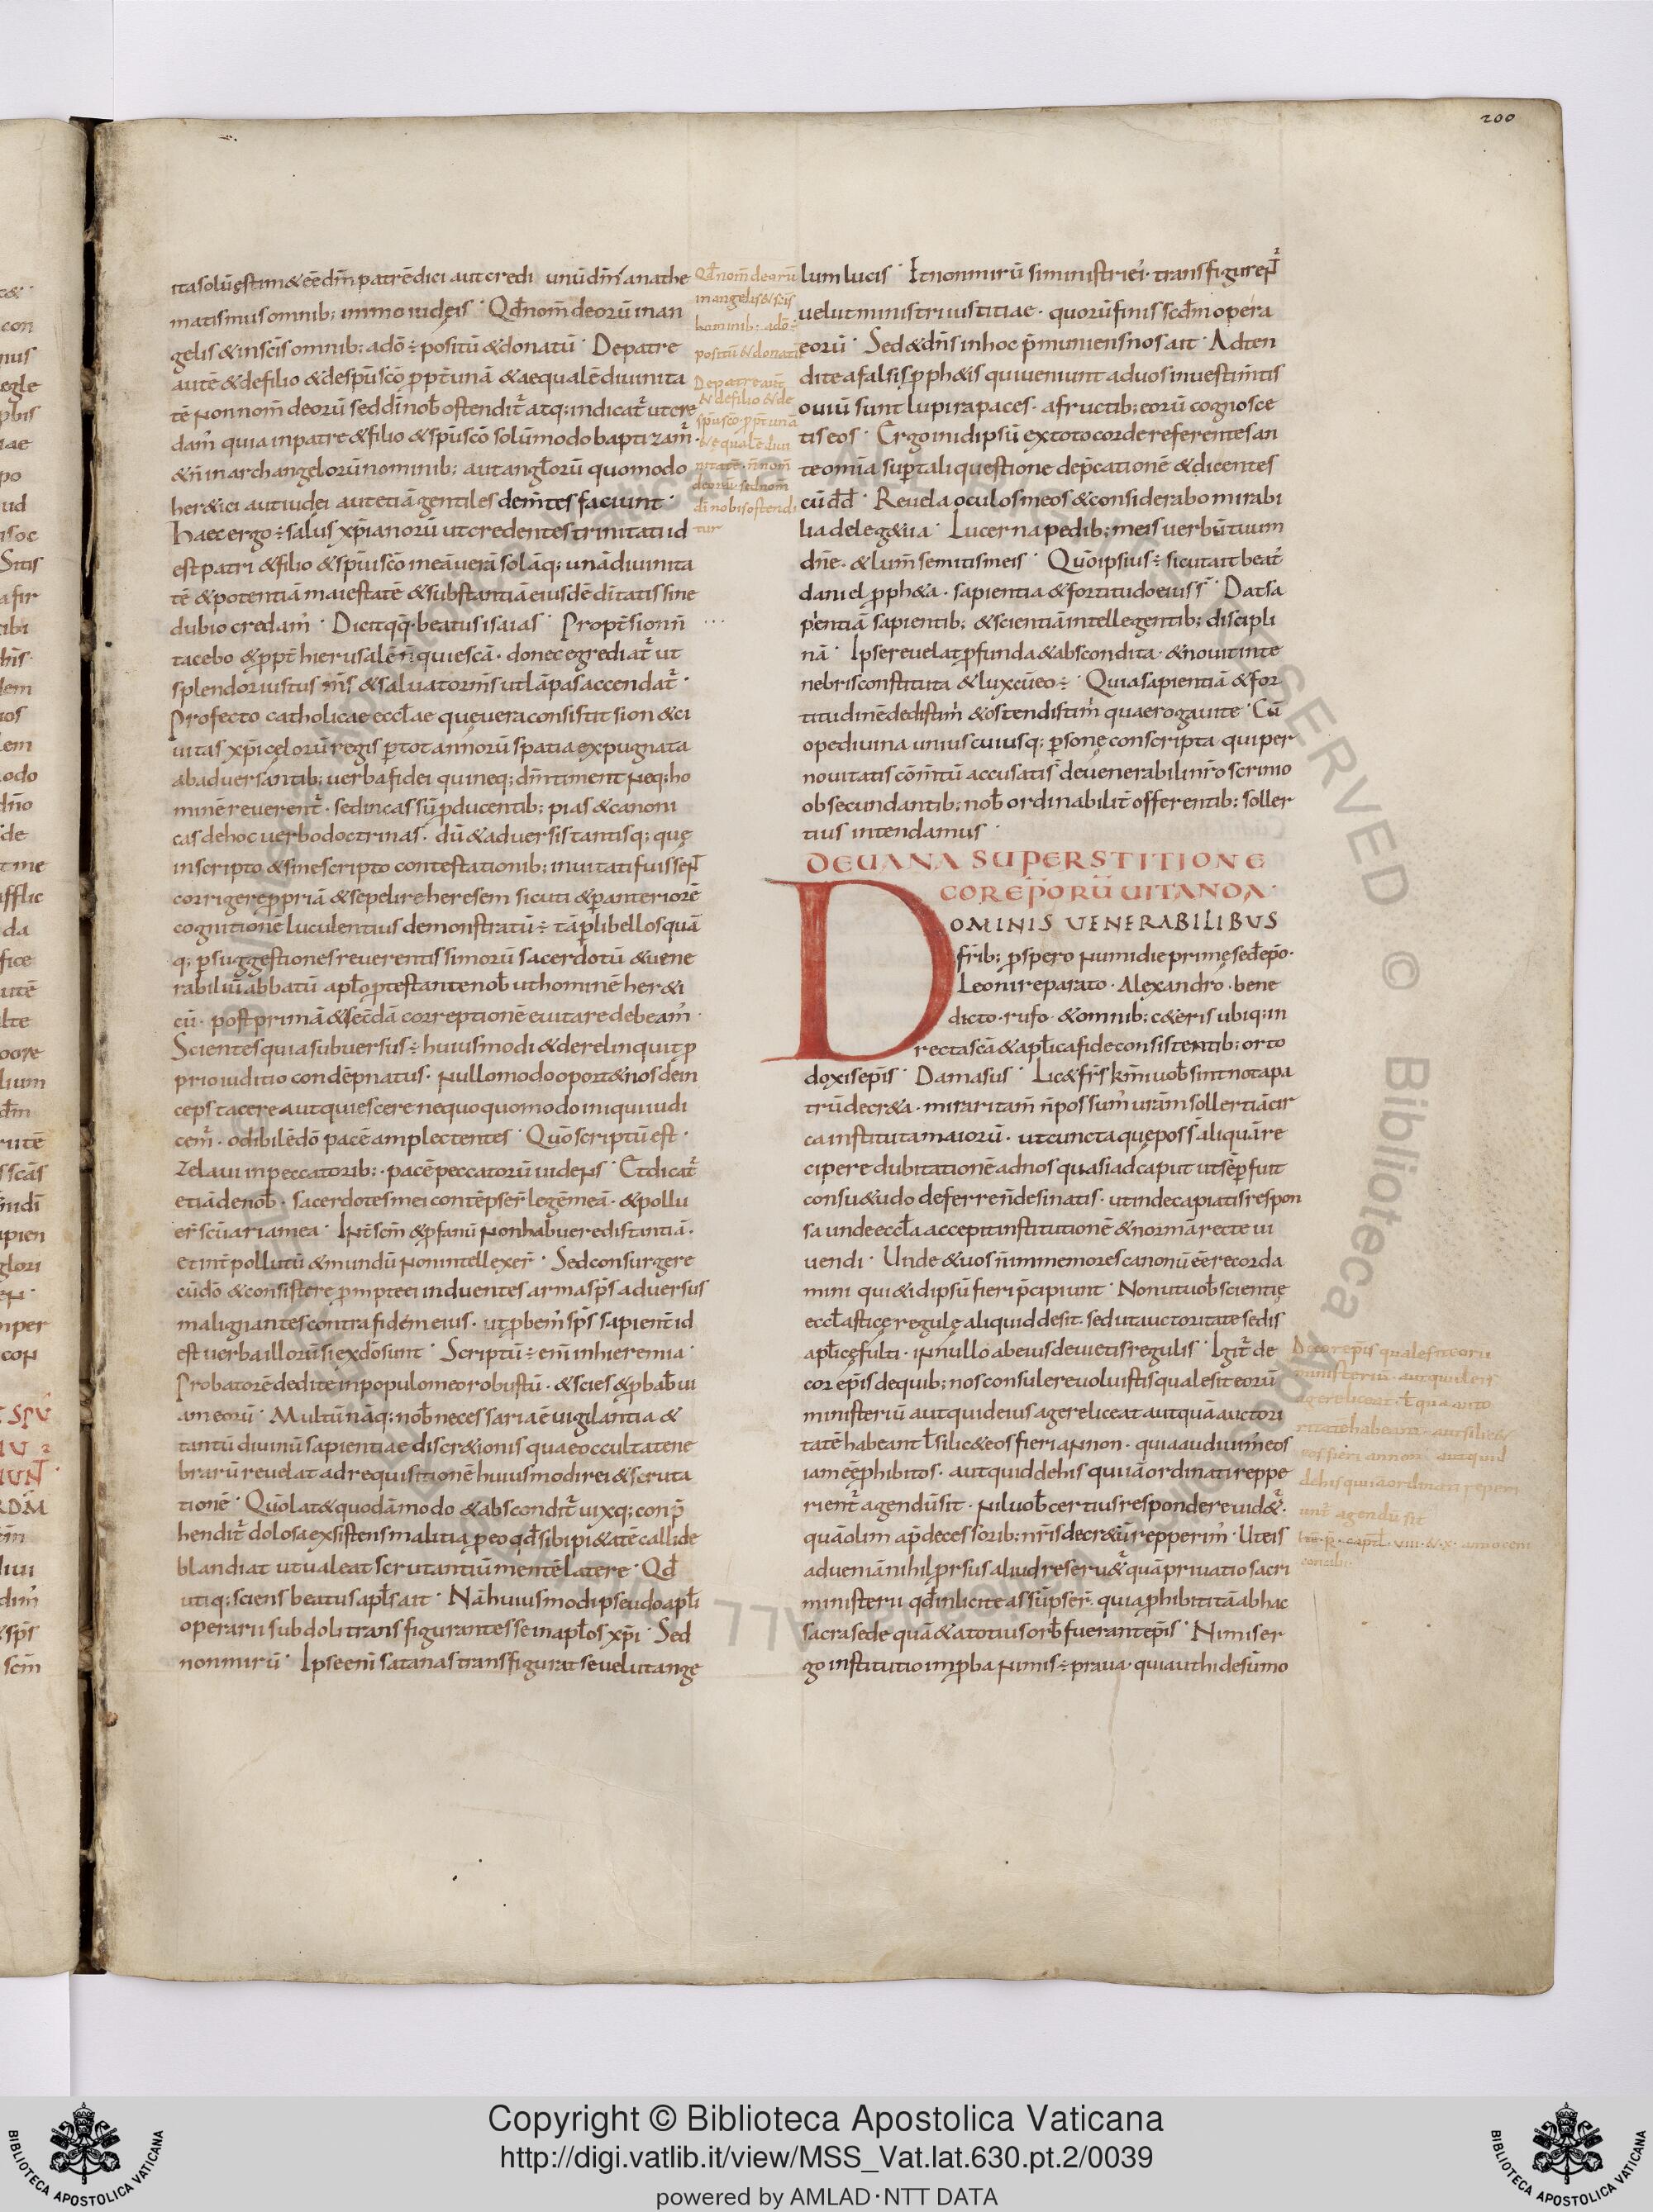 200
ita solū est im & eē dm̄ patrē dici aut credi unū dn̄m anathe
matismus omnib; immo iudęis · Qd̄ nom̄ deorū in an
gelis & in sc̄is omnib; a dō ÷ positū & donatū · De patre
autē & de filio & de spū sc̄o ppt̄ unā & aequalē divinita
tē non nom̄ deorū sed dī nob̄ ostendit̄ atq; indicat̄ ut cre
dam̄ quia in patre & filio & spū sc̄o solū modo baptizam̄ ·
& n̄ in archangelorū nominib; aut angl̄orū quomodo
her&ici aut iudei aut etiā gentiles dem̄tes faciunt ·
Haec ergo ÷ salus xp̄ianorū ut credentes trinitati id
est patri & filio & spū sc̄o in eā verā solāq; unā divinita
tē & potentiā maiestatē & substantiā eiusdē dītatis sine
dubio credam̄ · Dicitqq̄ · beatus isaias · Propt̄ sion n̄
tacebo & ppt̄ hierusalē n̄ quiescā · donec egrediat̄ ut
splendor iustus & salvator ut lāpas accendat̄ ·
Profecto catholicae eccl̄ae quę vera consistit sion & ci
vitas xp̄i cęlorū regis p tot annorū spatia expugnata
ab adversantib; verba fidei qui neq; dm̄ timent neq; ho
minē reverent̄ · sed incassū pducentib; pias & canoni
cas de hoc verbo doctrinas · dū & adversis tantisq; quę
in scripto & sine scripto contestationib; invitati fuissent̄
corrigere ppriā & sepelire heresem sicuti & p anteriorē
cognitionē luculentius demonstratū ÷ tā p libellos quā
q; p suggestiones reverentissimorū sacerdotū & vene
rabiliū abbatū apl̄o ptestante nob̄ ut hominē her&i
cū · post primā & secdā correptionē evitare debeam̄ ·
Scientes quia subversus ÷ huiusmodi & derelinquit p
prio iuditio condēpnatus · Nullo modo oport& nos dein
ceps tacere aut quiescere ne quoquo modo iniqui iudi
cem̄ · odibilē dō pacē amplectentes · Quō scriptū est ·
Zelavi in peccatorib; · pacē peccatorū videns · Et dicat̄
etiā de nob̄ · sacerdotes mei contēpser̄ legē meā · & pollu
er̄ sc̄uaria mea · Int̄ scm̄ & pfanū non habuere distantiā ·
et int̄ pollutū & mundū non intellexer̄ · Sed consurgere
cū dō & consistere pmpte ei induentes arma sp̄s adversus
malignantes contra fidem eius · ut pbem̄ sp̄s sapient̄ id
est verba illorū si ex dō sunt · Scriptū ÷ enī in hieremia ·
Probatorē dedi te in populo meo robustū · & scies & pbab̄ vi
am eorū · Multū nāq; nob̄ necessaria ē vigilantia &
tantū divinū sapientiae discr&ionis quae occulta tene
brarū revelat ad requisitionē huiusmodi rei & scruta
tionē · Quō lat& quodā modo & abscondit̄ vixq; conp̄
hendit̄ dolosa existens malitia p eo qd̄ sibipi & atē callide
blandiat ut valeat scrutantiū mentē latere · Qd̄
utiq; sciens beatus apl̄s ait · Nā huiusmodi pseudo apl̄i
operarii subdoli transfigurantes se in apl̄os xp̄i · Sed
non mirū · Ipse enī satanas transfigurat se velut ange
Qd̄ nom̄ deorū
in angelis & sc̄is
hominib; a dō ÷
positū & donatū
De patre aut̄
& de filio & de
spū sc̄o ppt̄ unā
& equalē divi
nitatē · n̄ nom̄
deorū sed nom̄
dī nobis ostendi
tur
lum lucis · Et non mirū si ministri ei · transfigurent̄
velut ministri iustitiae · quorū finis scd̄m opera
eorū · Sed & dn̄s in hoc p̄muniens nos ait · Adten
dite a falsis pph&is qui veniunt ad vos in vestim̄tis
ouiū sunt lupi rapaces · a fructib; eorū cognosce
tis eos · Ergo in idipsū ex toto corde referentes an
te omīa sup tali questione dep̄cationē & dicentes
cū dd̄ · Revela oculos meos & considerabo mirabi
lia de lege tua · Lucerna pedib; meis verbū tuum
dn̄e · & lum̄ semitis meis · Quō ipsius ÷ sicut ait beat̄
daniel pph&a · sapientia & fortitudo eius s̄ · Dat sa
pientiā sapientib; & scientiā intellegentib; discipli
nā · Ipse revelat pfunda & abscondita · & novit in te
nebris constituta & lux cū eo ÷ · Quia sapientiā & for
titudinē dedisti m̄ & ostendisti m̄ quae rogavi te · Cū
ope divina uniuscuiusq; psonę conscripta qui per
novitatis cōm̄tū accusatis de venerabili nr̄o scrinio
obsecundantib; nob̄ ordinabilit̄ offerentib; soller
tius intendamus ·
DE VANA SUPERSTITIONE
COREPORŪ VITANDA ·
DOMINIS VENERABILIBUS
fr̄ib; pspero numidie primę sed̄ epō ·
Leoni reparato · Alexandro · bene
dicto · rufo · & omnib; c&eris ubiq; in
recta sc̄a & apl̄ica fide consistentib; orto
doxis ep̄is · Damasus · Lic& fr̄s km̄i vob̄ sint nota pa
trū decr&a · mirari tam̄ n̄ possum̄ vrām sollertiā cir
ca instituta maiorū · ut cuncta quę poss̄ aliquā re
cipere dubitationē ad nos quasi ad caput ut sēp fuit
consu&udo deferre n̄ desinatis · ut inde capiatis respon
sa unde eccl̄a accepit institutionē & normā recte vi
vendi · Unde & vos n̄ immemores canonū eē recorda
mini qui & idipsū fieri p̄cipiunt · Non ut vob̄ scientię
eccl̄asticę regulę aliquid desit · sed ut auctoritate sedis
apl̄icę fulti · in nullo ab eius devietis regulis · Igit̄ de
corep̄is de quib; nos consulere voluistis quale sit eorū
ministeriū aut quid eius agere liceat aut quā auctori
tatē habeant l̄ si lic& eos fieri an non · quia audivim̄ eos
iam eē phibitos · aut quid de his qui iā ordinati reppe
rient̄ agendū sit · Nil vob̄ certius respondere vid&̄ ·
quā olim ap̄decessorib; nr̄is decr&ū repperim̄ · Ut eis
ad veniā nihil prsus aliud reserv&̄ quā privatio sacri
ministerii qd̄ inlicite assūpser̄ · quia phibiti tā ab hac
sacra sede quā & a totius orb̄ fuerant ep̄is · Nimis er
go institutio impba nimis ÷ prava · quia ut hi de sūmo
De corep̄is quale sit eorū
ministeriū · aut quid eis
agere liceat · l̄ quā aucto
ritatē habeant · aut si lic&
eos fieri an non · aut quid
de his qui iā ordinati reperi
unt̄ agendū sit
Copyright © Biblioteca Apostolica Vaticana
http://digi.vatlib.it/view/MSS_Vat.lat.630.pt.2/0039
powered by AMLAD·NTT DATA
BIBLIOTECA APOSTOLICA VATICANA
BIBLIOTECA APOSTOLICA VATICANA